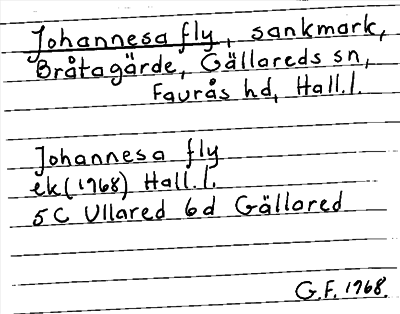 Johannesa fly, sankmark,
Bråtagärde, Gällareds sn,
Faurås hd, Hall.l.
Johannesa fly
ek(1968) Hall.l.
5C Ullared 6d Gällared
G.F. 1968.